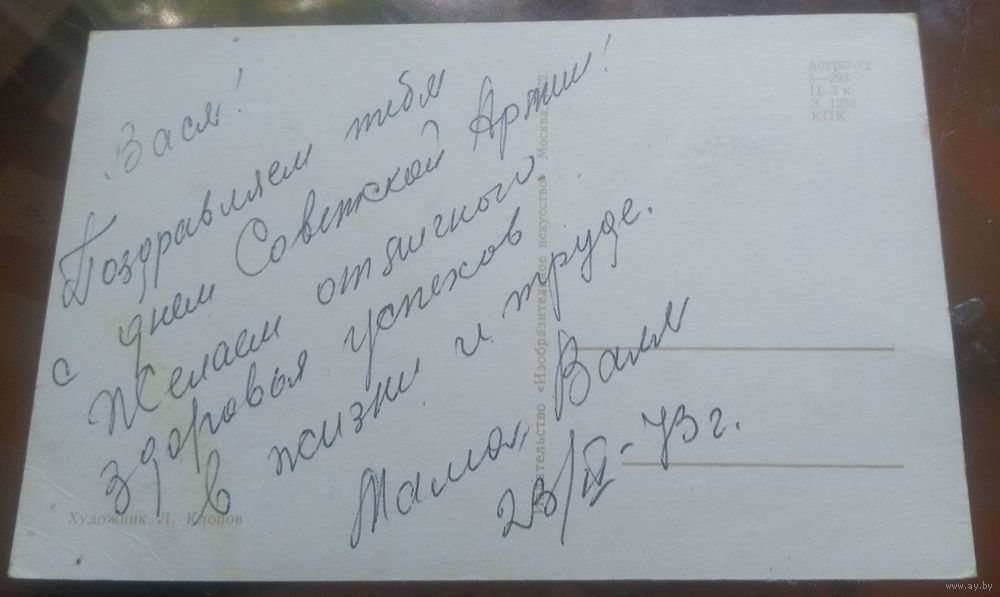 Вася!
Поздравляем тебя
с днем Советской Армии!
Желаем отличного
здоровья успехов
в жизни и труде.
Мама, Валя
23/II-73 г.
Художник Л. Клопов
Издательство «Изобразительное искусство». Москва.
А02767-72
5—293
Ц. 3 к.
З. 1253
КПК
www.ay.by